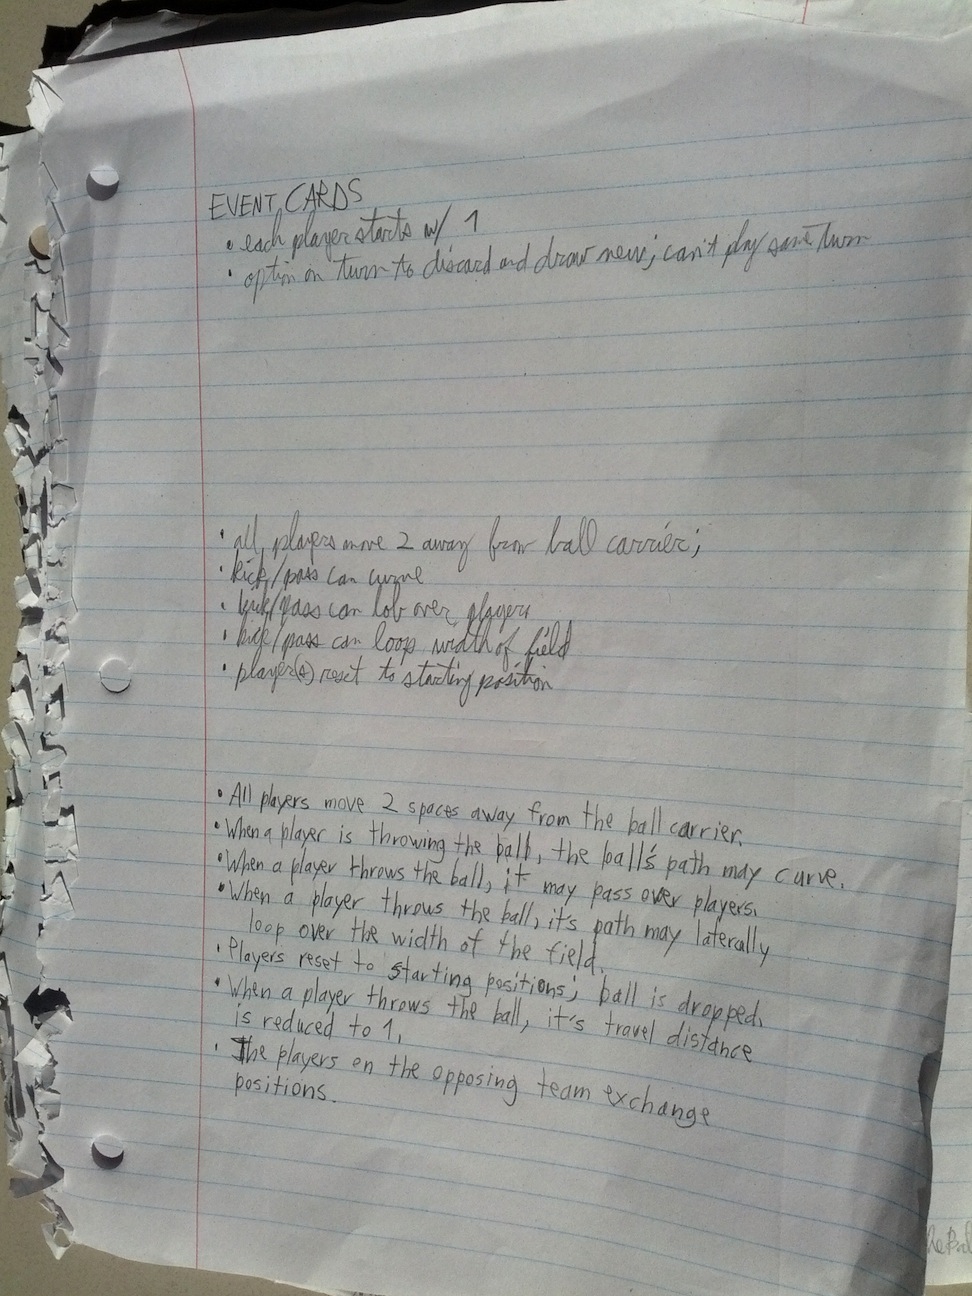 EVENT CARDS
• each player starts w/ 1
• option on turn to discard and draw new; can't play same turn
• all players move 2 away from ball carrier;
• kick/pass can curve
• kick/pass can lob over players
• kick/pass can loop width of field
• player(s) reset to starting position
• All players move 2 spaces away from the ball carrier.
• When a player is throwing the ball, the ball's path may curve.
• When a player throws the ball, it may pass over players.
• When a player throws the ball, it's path may laterally
loop over the width of the field.
• Players reset to starting positions; ball is dropped.
• When a player throws the ball, it's travel distance
is reduced to 1.
• The players on the opposing team exchange
positions.